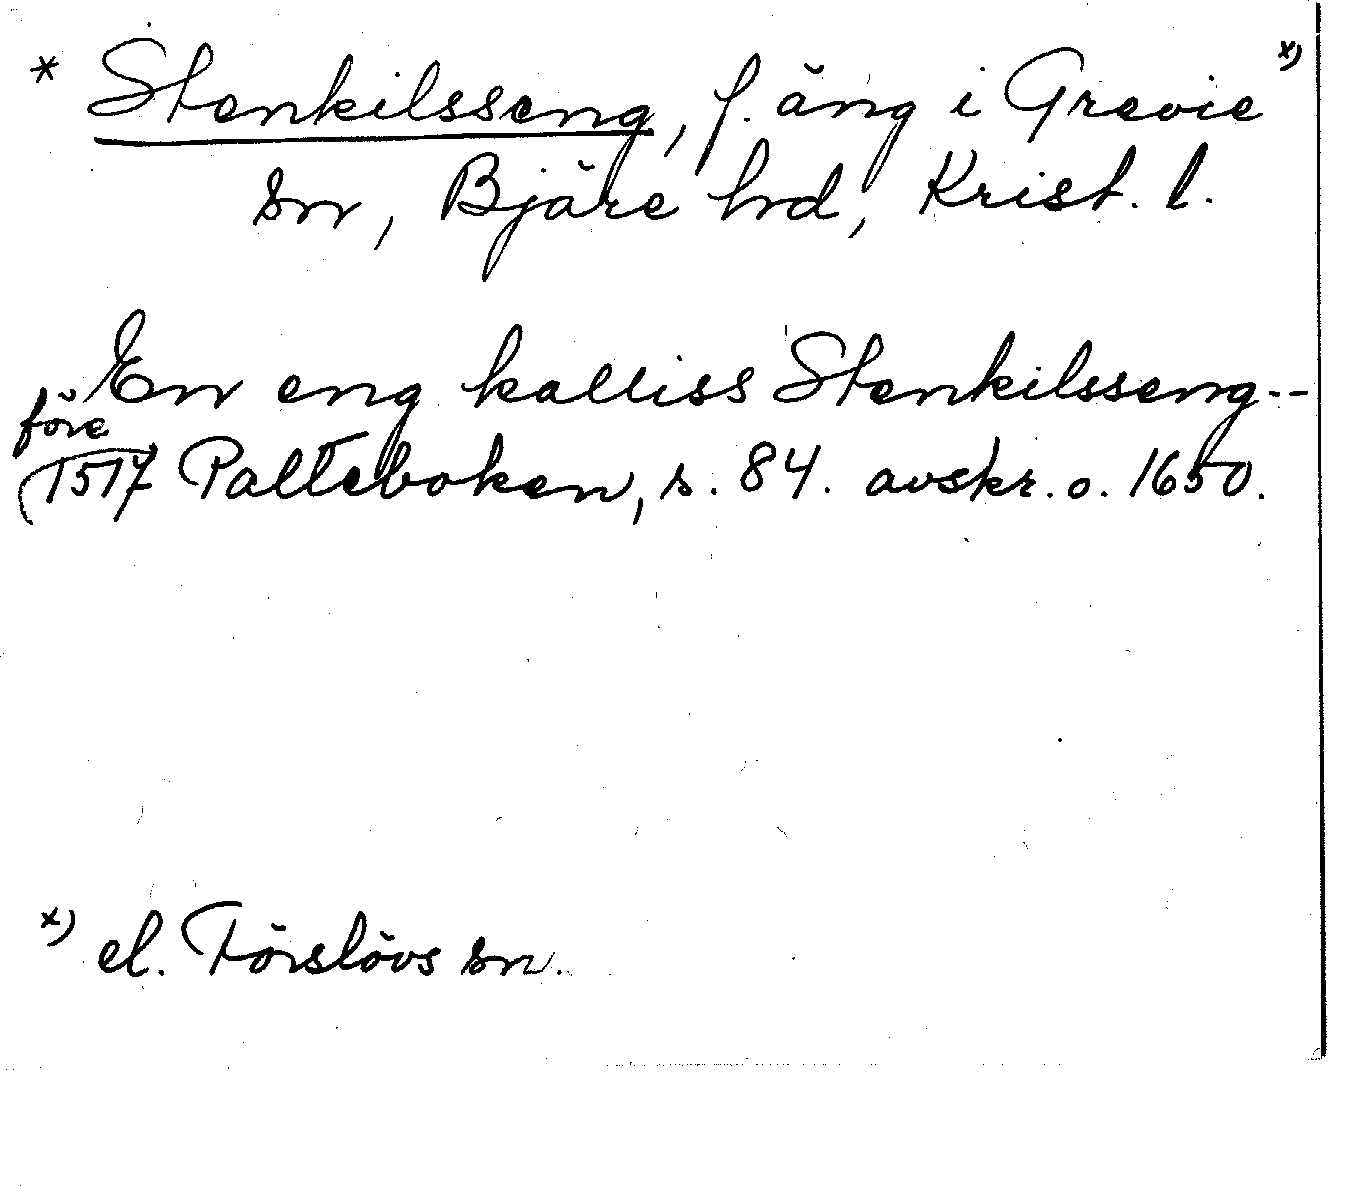 * Stenkilsseng, f. äng i Grevie x)
sn, Bjäre hd, Krist. l.
En eng kalliss Stenkilsseng--
före
(1517 Palteboken, s. 84. avskr. o. 1650.
x) el. Förslövs sn.